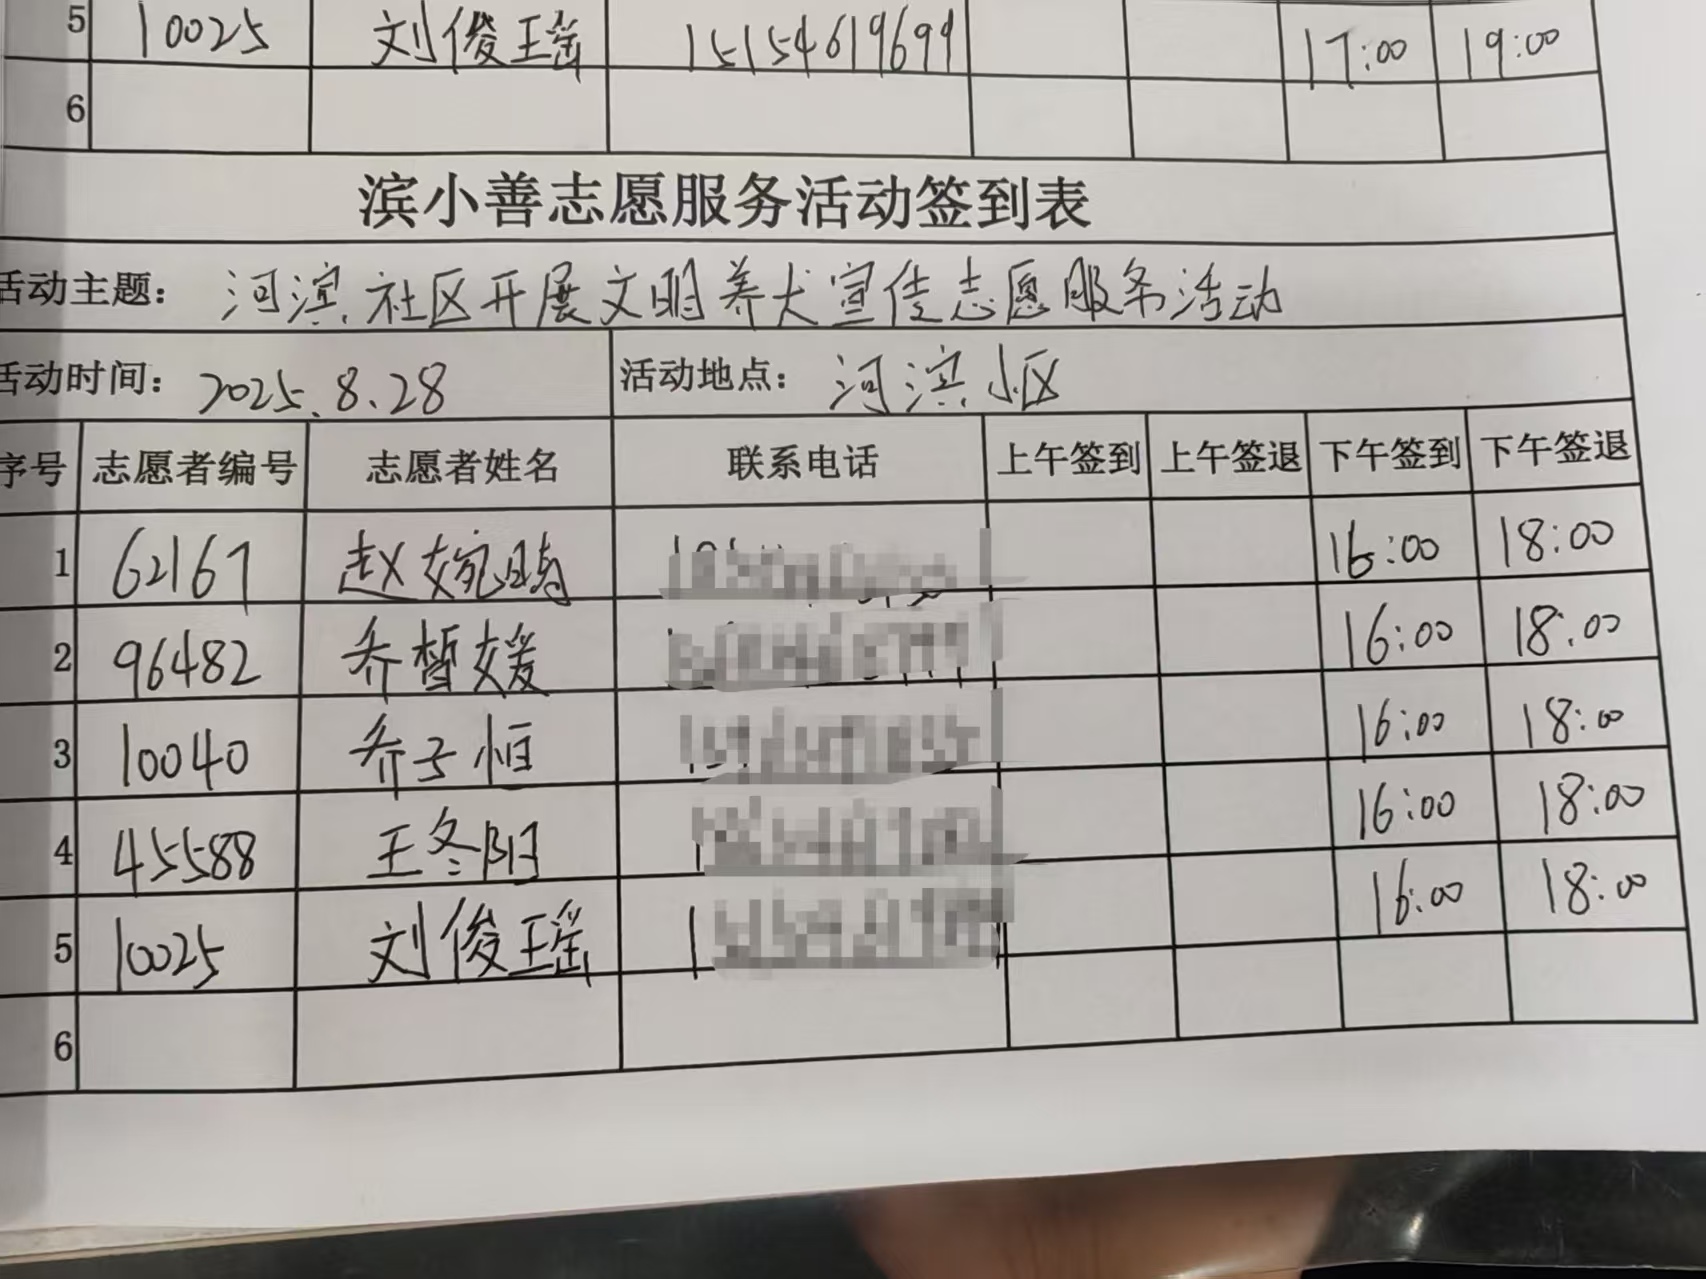 5 10025 刘俊瑶 15154619699 17:00 19:00
6
滨小善志愿服务活动签到表
活动主题: 河滨社区开展文明养犬宣传志愿服务活动
活动时间: 2025.8.28 活动地点: 河滨小区
序号 志愿者编号 志愿者姓名 联系电话 上午签到 上午签退 下午签到 下午签退
1 62167 赵婉晴 16:00 18:00
2 96482 乔皙媛 16:00 18:00
3 10040 乔子恒 16:00 18:00
4 45588 王冬阳 16:00 18:00
5 10025 刘俊瑶 16:00 18:00
6